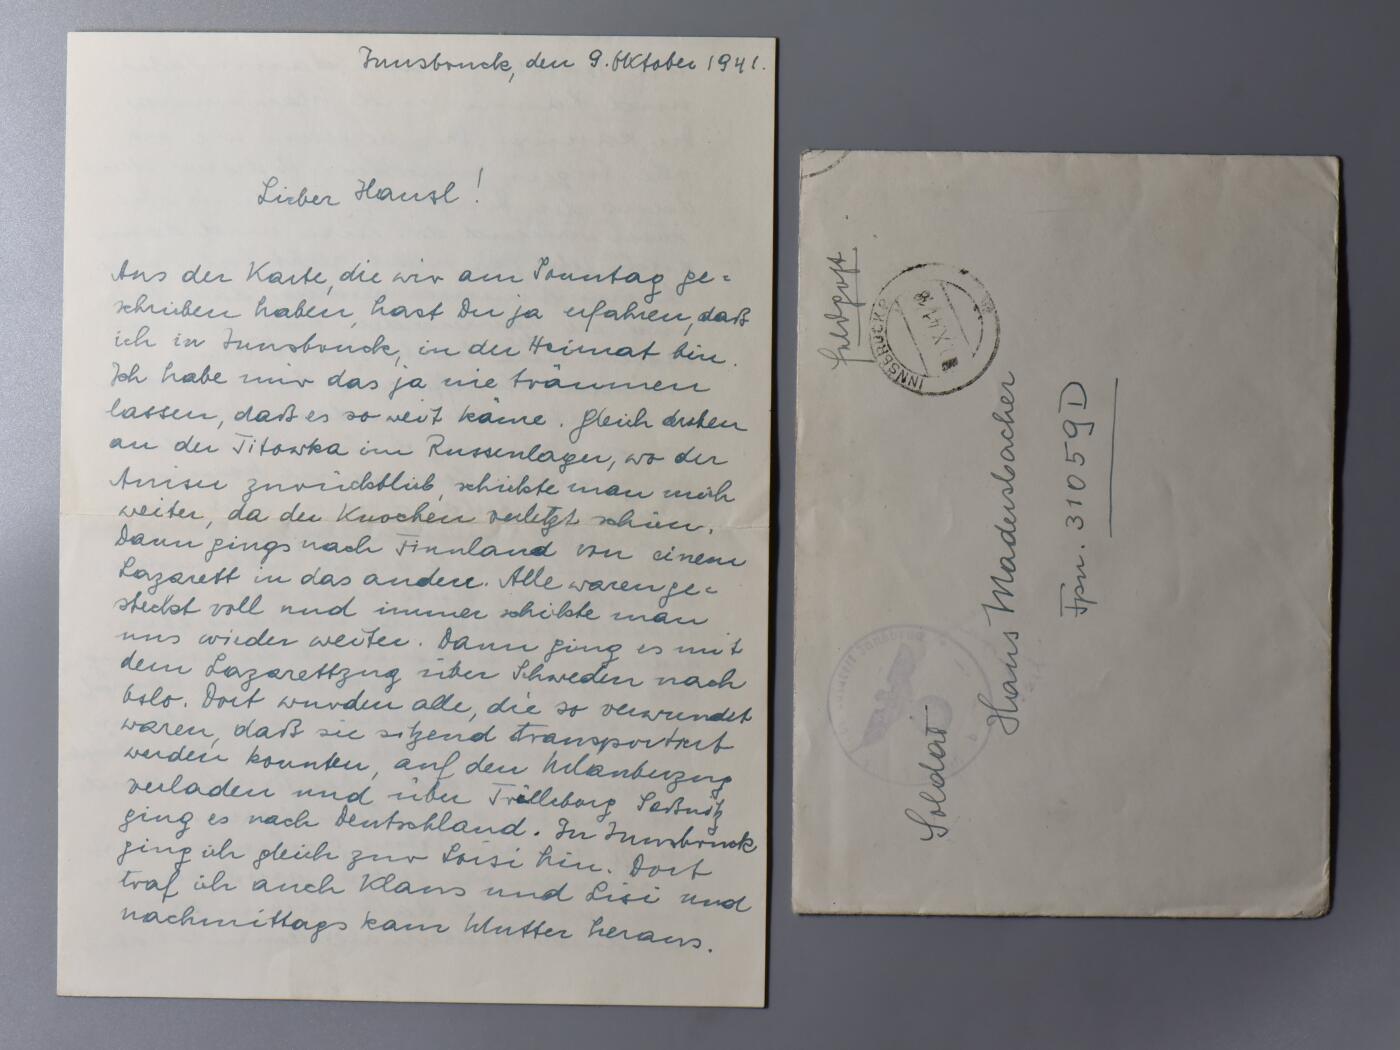 Innsbruck, den 9. Oktober 1941.
Lieber Hansl!
Aus der Karte, die wir am Sonntag ge=
schrieben haben, hast Du ja erfahren, daß
ich in Innsbruck, in der Heimat bin.
Ich habe mir das ja nie träumen
lassen, daß es so weit käme. Gleich drüben
an der Titowka im Russenlager, wo der
zurückblieb, schickte man mich
weiter, da der Knochen verletzt schien.
Dann gings nach Finnland von einem
Lazarett in das andere. Alle waren ge=
steckt voll und immer schickte man
uns wieder weiter. Dann ging es mit
dem Lazarettzug über Schweden nach
Oslo. Dort wurden alle, die so verwundet
waren, daß sie sitzend transportiert
werden konnten, auf den Urlauberzug
verladen und über Trelleborg Saßnitz
ging es nach Deutschland. In Innsbruck
ging ich gleich zur Loisi hin. Dort
traf ich auch Klaus und Lisi und
nachmittags kam Mutter heraus.
Feldpost.
INNSBRUCK 2
X.41
Soldat
Hans Madersbacher
Fpn. 31059 D
Innsbruck